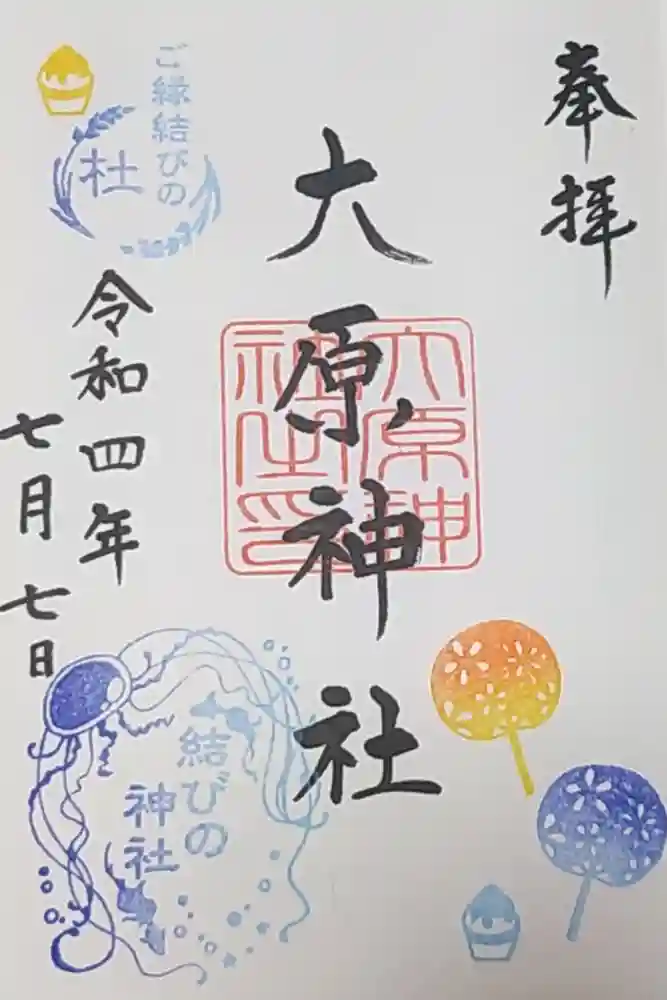 奉拝
大原神社
大原神
社之印
令和四年
七月七日
ご縁結びの
杜
結びの
神社